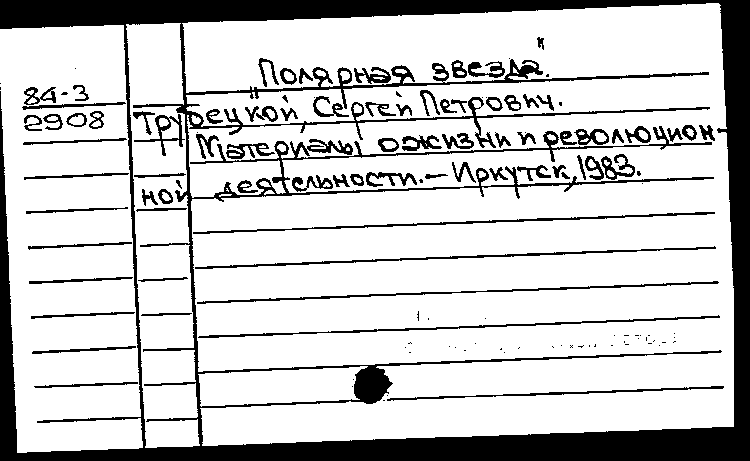 "Полярная звезда".
84-3
2908
Трубецкой, Сергей Петрович.
Материалы о жизни и революцион-
ной деятельности. - Иркутск, 1983.